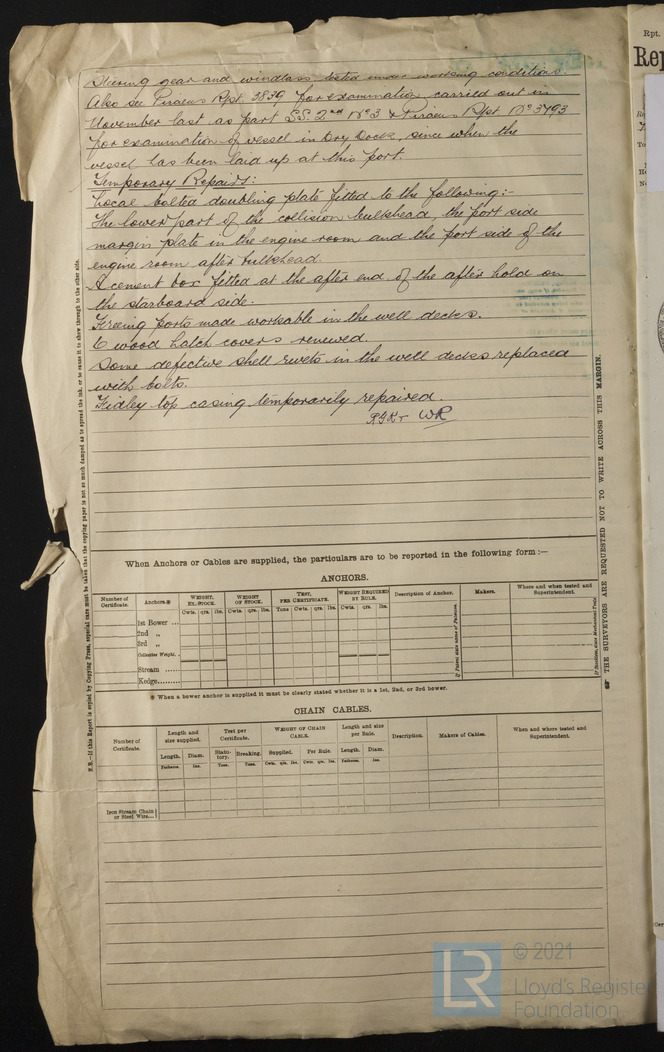 Steering gear and windlass tested under working conditions.
Also see Piraeus Rpt. 3839 for examination carried out in
November last as part S.S. 2nd No 3 & Piraeus Rpt No 3793
for examination of vessel in Dry Dock, since when the
vessel has been laid up at this port.
Temporary Repairs:
Local bolted doubling plate fitted to the following:-
The lower part of the collision bulkhead, the port side
margin plate in the engine room and the port side of the
engine room after bulkhead.
A cement box fitted at the after end of the after hold on
the starboard side.
Freeing ports made workable in the well decks.
6 wood hatch covers renewed.
Some defective shell rivets in the well decks replaced
with bolts.
Fidley top casing temporarily repaired.
WR
When Anchors or Cables are supplied, the particulars are to be reported in the following form :—
ANCHORS.
Number of Certificate. Anchors.※ WEIGHT, EX. STOCK. WEIGHT OF STOCK. TEST, PER CERTIFICATE. WEIGHT REQUIRED BY RULE. Description of Anchor. Makers. Where and when tested and Superintendent.
Cwts. qrs. lbs. Cwts. qrs. lbs. Tons Cwt. qrs. lbs. Cwts. qrs. lbs.
1st Bower ...
2nd „
3rd „
Collective Weight.
Stream ......
Kedge........
※ When a bower anchor is supplied it must be clearly stated whether it is a 1st, 2nd, or 3rd bower.
CHAIN CABLES.
Number of Certificate. Length and size supplied. Test per Certificate. WEIGHT OF CHAIN CABLE. Length and size per Rule. Description. Makers of Cables. When and where tested and Superintendent.
Length. Diam. Statutory. Breaking. Supplied. Per Rule. Length. Diam.
Fathoms. Ins. Tons. Tons. Cwts. qrs. lbs. Cwts. qrs. lbs. Fathoms. Ins.
Iron Stream Chain or Steel Wire...
N.B.—If this Report is copied by Copying Press, especial care must be taken that the copying paper is not so much damped as to spread the ink, or to cause it to show through to the other side.
THE SURVEYORS ARE REQUESTED NOT TO WRITE ACROSS THIS MARGIN.
Rpt.
Rep
LR
© 2021
Lloyd's Register
Foundation